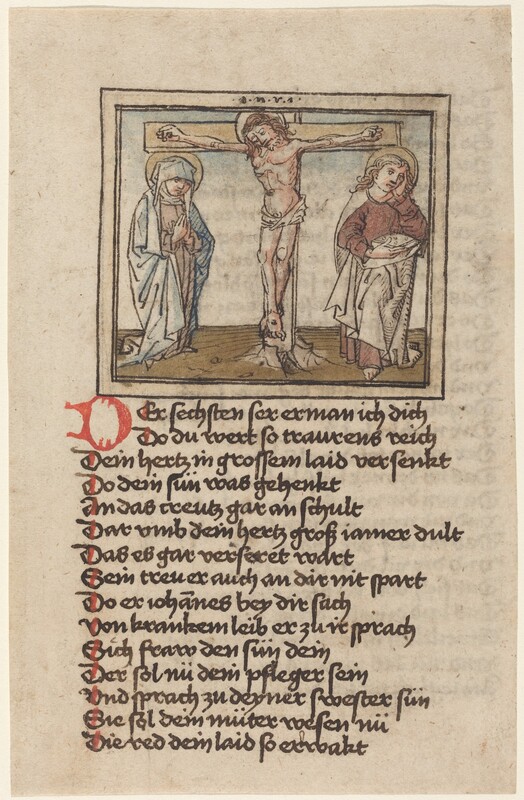 I·N·R·I·
Der sechsten ser erman ich dich
Do du wert so traurens reich
Dein hertz in grossem laid versenkt
Do dein sün was gehenkt
An das creutz gar an schult
Dar vmb dein hertz groß iamer dult
Das es gar verseret wart
Sein treu er auch an dir nit spart
Do er iohānes bey dir sach
Von krankem leib er zu ir sprach
Sich fraw den sün dein
Der sol nü dein pfleger sein
Vnd sprach zu deyner swester sün
Sie sol dein müter wesen nü
Die red dein laid so erwakt